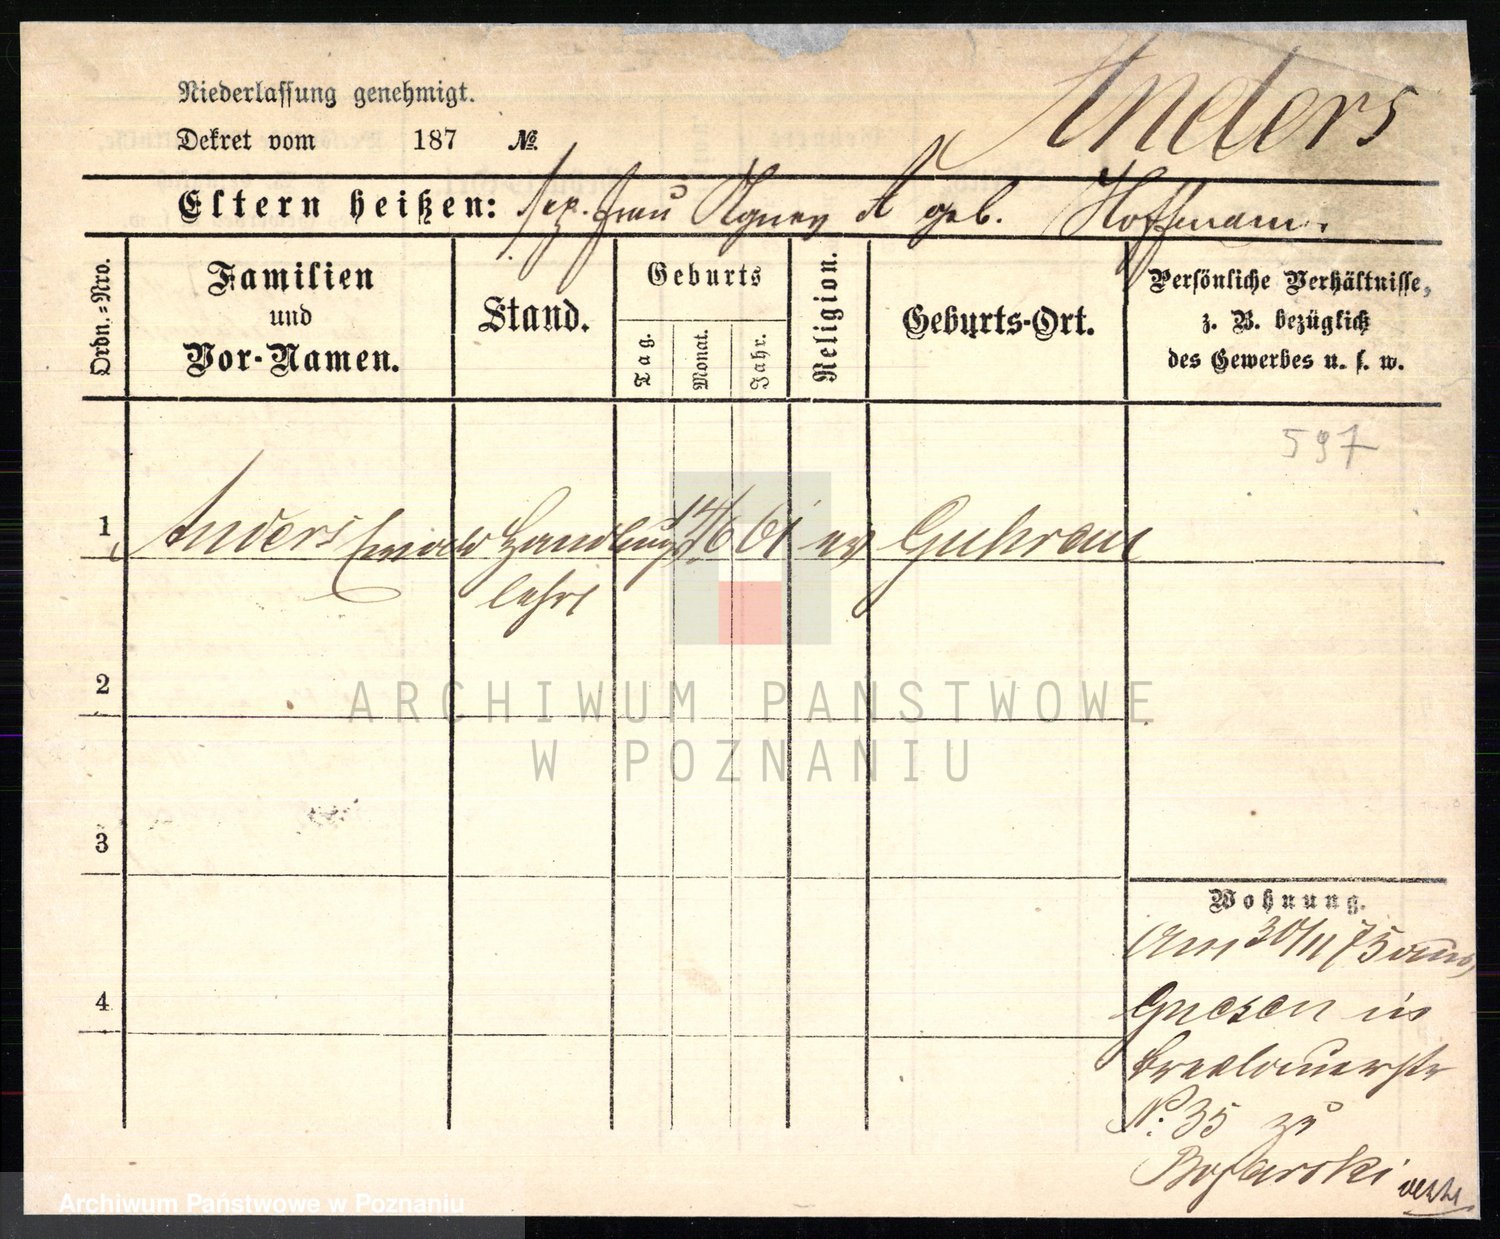 Anders
Niederlassung genehmigt.
Dekret vom 187 №.
Eltern heißen: sep. Frau Agnes A geb. Hoffmann.
Ordn.=Nro.
Familien
und
Vor-Namen.
Stand.
Geburts
Tag.
Monat.
Jahr.
Religion.
Geburts-Ort.
Persönliche Verhältnisse,
z. B. bezüglich
des Gewerbes u. s. w.
597
1 Anders Ewald Handlungs 14/6 61 ev Guhrau
lehrl
2
ARCHIWUM PANSTWOWE
W POZNANIU
3
4
Wohnung.
Am 30/11 75 aus
Gnesen in
Breslauerstr
№: 35 zu
Archiwum Państwowe w Poznaniu